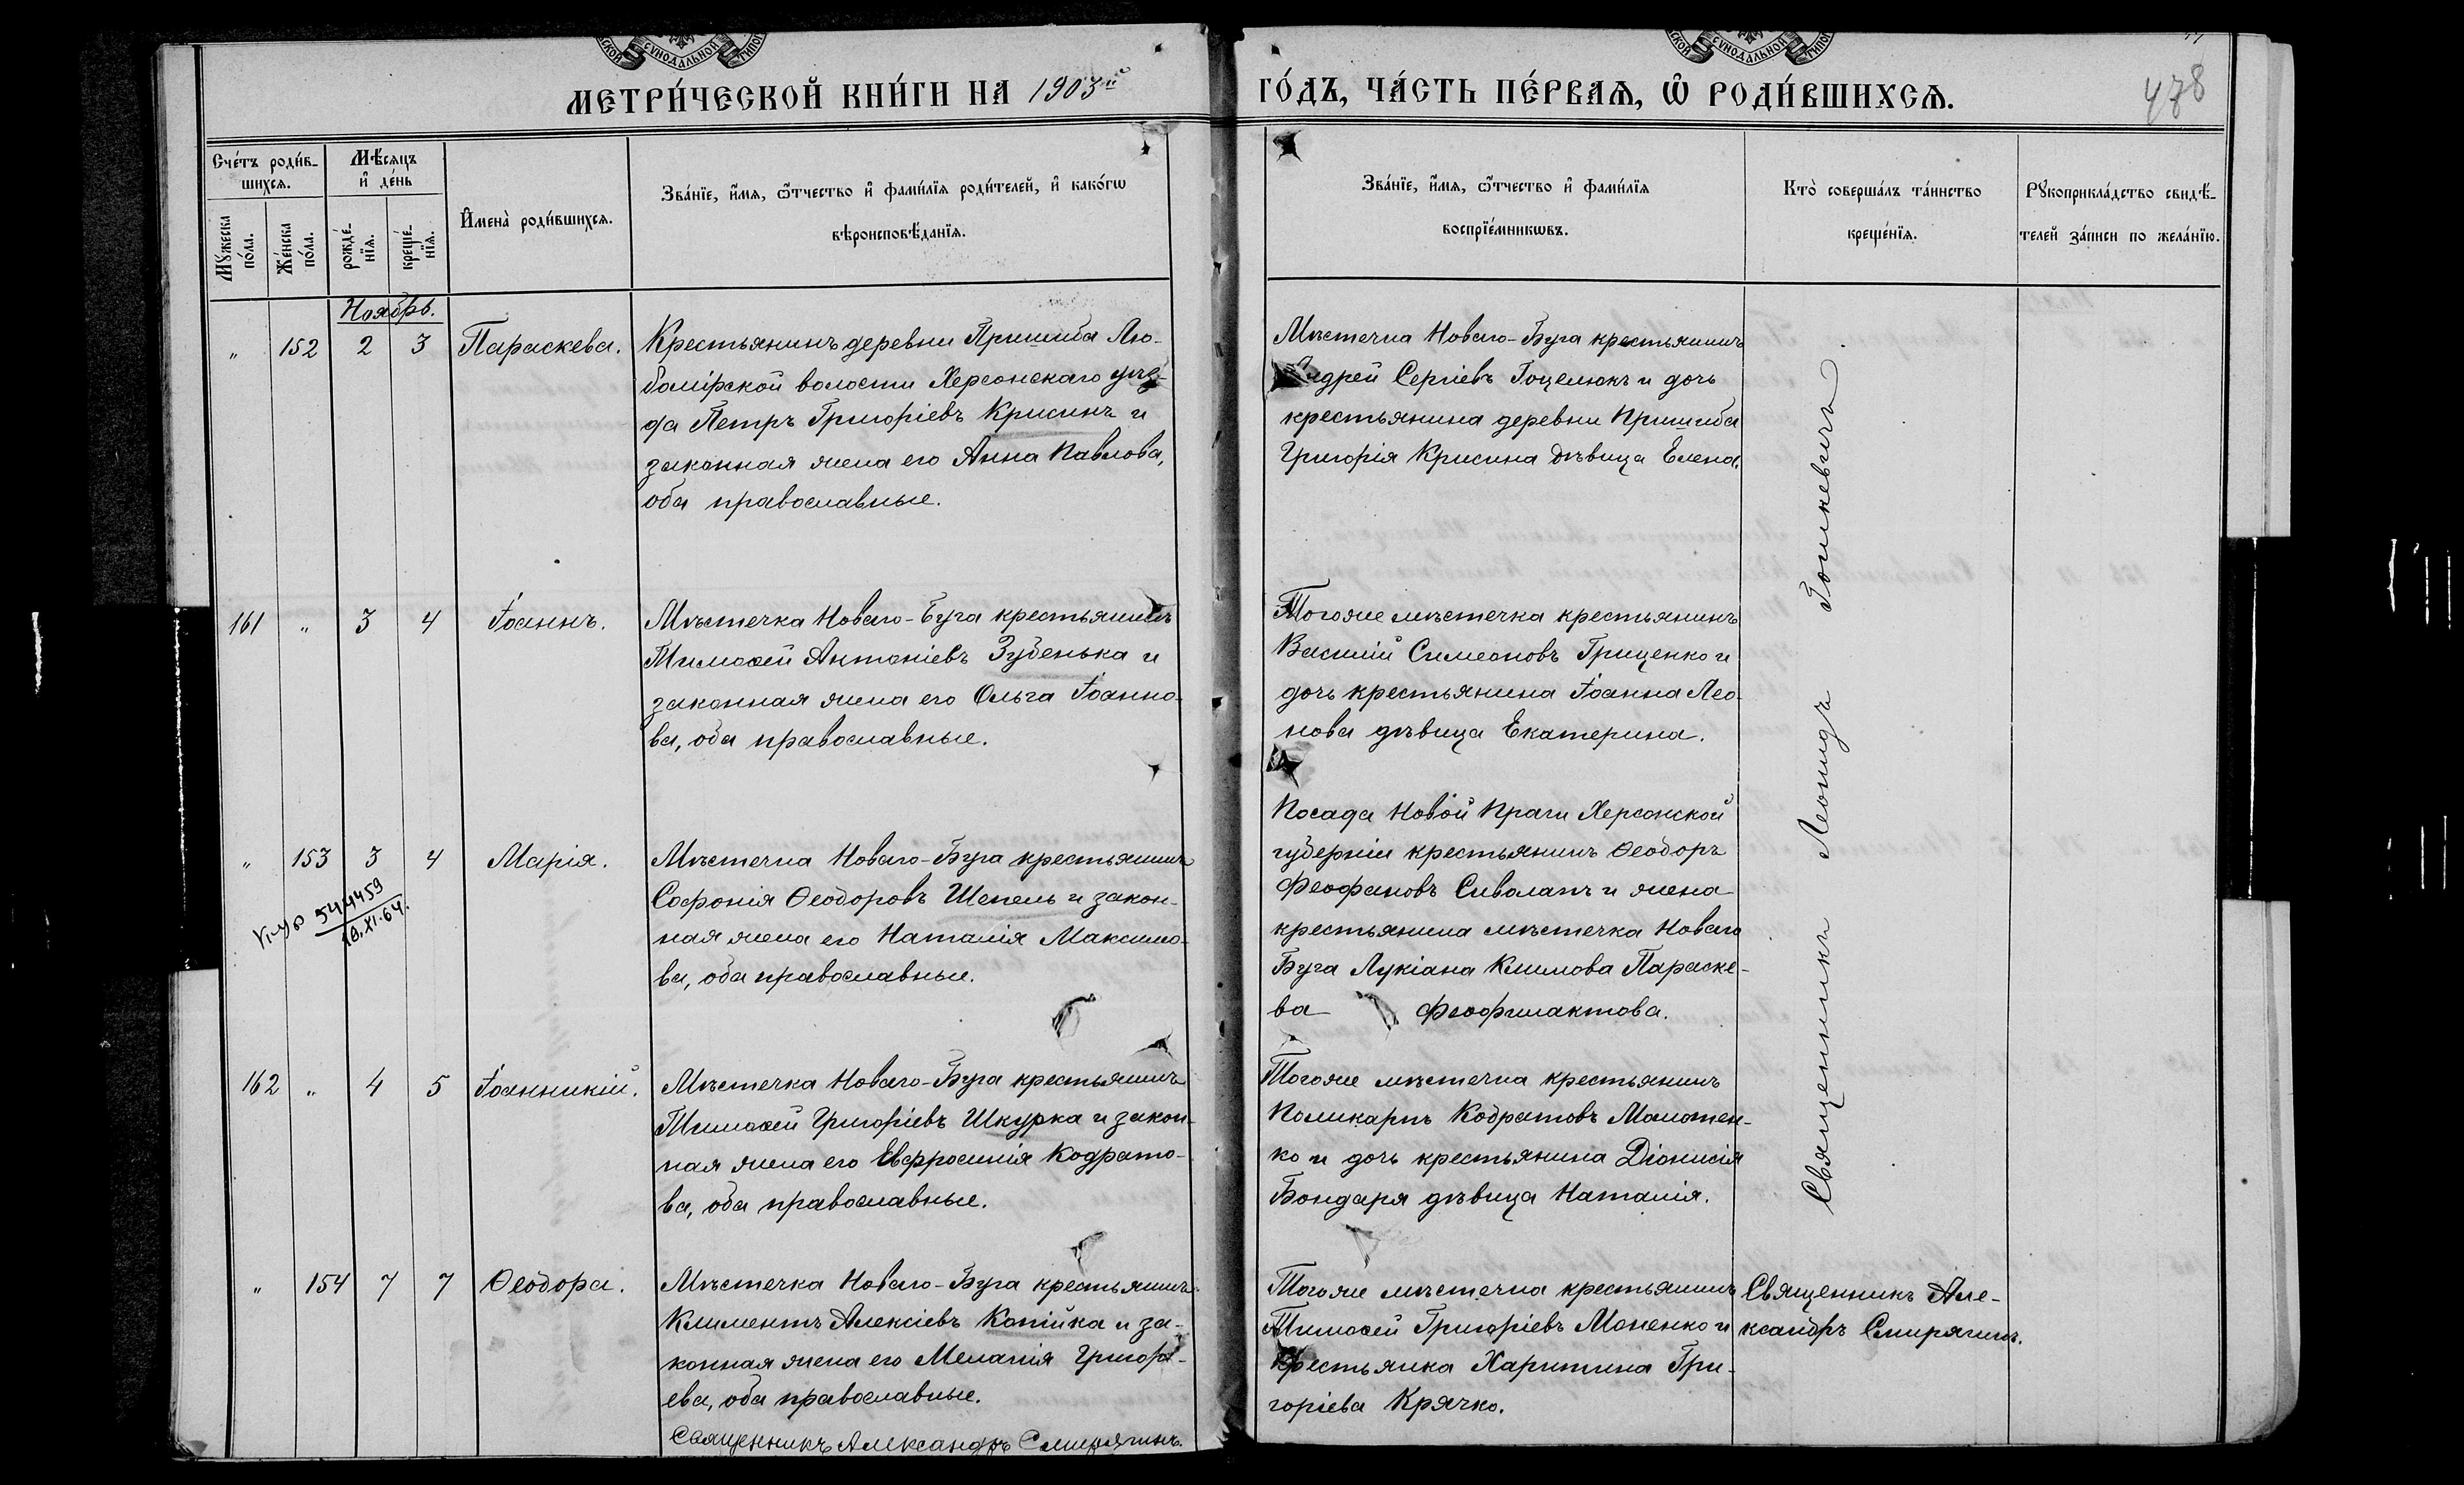 СѴНОДАЛЬНОЙ
СѴНОДАЛЬНОЙ
МЕТРИ́ЧЕСКОЙ КНИ́ГИ НА 1903й
ГО́ДЪ, ЧА́СТЬ ПЕ́РВАѦ, Ѡ РОДИ́ВШИХСѦ.
478
Сче́тъ роди́в-
шихсѧ.
Мѣ́сѧцъ
и҆ де́нь
Мꙋ́жеска
по́ла.
Же́нска
по́ла.
рожде́-
нїѧ.
креще́-
нїѧ.
И҆мена̀ роди́вшихсѧ.
Зва́нїе, и҆́мѧ, ѻ҆́тчество и҆ фами́лїѧ роди́телей, и҆ како́гѡ
вѣроисповѣ́данїѧ.
Зва́нїе, и҆́мѧ, ѻ҆́тчество и҆ фами́лїѧ
воспрїе́мникѡвъ.
Кто̀ соверша́лъ та́инство
креще́нїѧ.
Рꙋкоприкла́дство свидѣ́-
телей за́писи по жела́нїю.
Ноябрь.
" 152 2 3 Параскева.
Крестьянинъ деревни Пришиба Лю-
бомірской волости Херсонскаго уѣз-
да Петръ Григоріевъ Крисинъ и
законная жена его Анна Павлова,
оба православные.
Мѣстечка Новаго-Буга крестьянинъ
Андрей Сергіевъ Гоцелюкъ и дочь
крестьянина деревни Пришиба
Григорія Крисина дѣвица Елена.
161 " 3 4 Іоаннъ.
Мѣстечка Новаго-Буга крестьянинъ
Тимоѳей Антоніевъ Зубенька и
законная жена его Ольга Іоанно-
ва, оба православные.
Тогоже мѣстечка крестьянинъ
Василій Симеоновъ Гриценко и
дочь крестьянина Іоанна Лео-
нова дѣвица Екатерина.
" 153 3 4 Марія.
544459
10.XI.64.
Мѣстечка Новаго-Буга крестьянинъ
Софонія Ѳеодоровъ Шепель и закон-
ная жена его Наталія Максимо-
ва, оба православные.
Посада Новой Праги Херсонской
губерніи крестьянинъ Ѳеодоръ
Феофановъ Сиволапъ и жена
крестьянина мѣстечка Новаго
Буга Лукіана Климова Параске-
ва Феофилактова.
162 " 4 5 Іоанникій.
Мѣстечка Новаго-Буга крестьянинъ
Тимоѳей Григоріевъ Шкурка и закон-
ная жена его Евфросинія Кодрато-
ва, оба православные.
Тогоже мѣстечка крестьянинъ
Поликарпъ Кодратовъ Молотен-
ко и дочь крестьянина Діонисія
Бондаря дѣвица Наталія.
Священникъ Леонидъ Гошкевичъ
" 154 7 7 Ѳеодора.
Мѣстечка Новаго-Буга крестьянинъ
Климентъ Алексіевъ Копійка и за-
конная жена его Меланія Григорі-
ева, оба православные.
Тогоже мѣстечка крестьянинъ
Тимоѳей Григоріевъ Моненко и
крестьянка Харитина Гри-
горіева Крячко.
Священникъ Але-
ксандръ Смирягинъ.
Священникъ Александръ Смирягинъ.